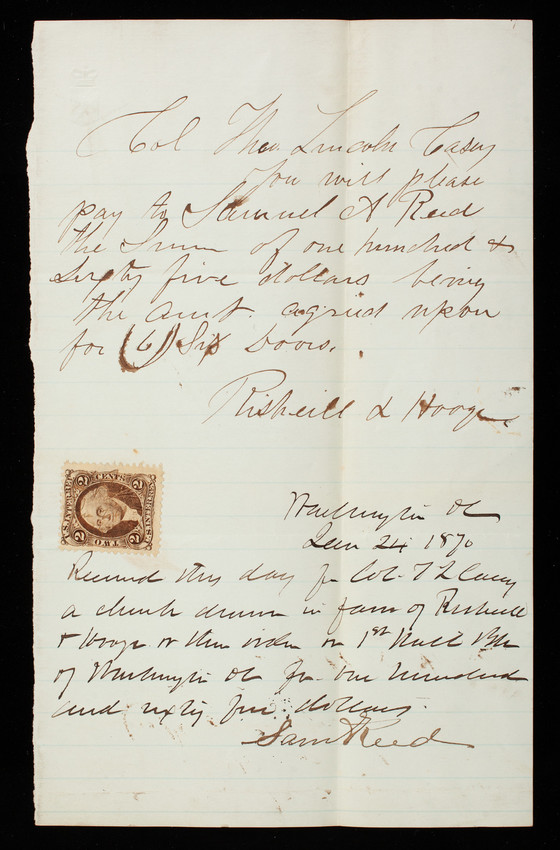 Col Thos Lincoln Casey
You will please
pay to Samuel A Reed
the Sum of one hundred &
Sixty five dollars being
the amt. agried upon
for (6) Six Doors.
& Hooge
U.S. INTER. REV.
2 CENTS 2
2 TWO 2
Washington DC
Jan 24 1870
Received this day fr Col. T L Casey
a check drawn in favor of
& Hooge or their order on 1st Natl Bk
of Washington DC for one hundred
and sixty five dollars.
Sam A Reed